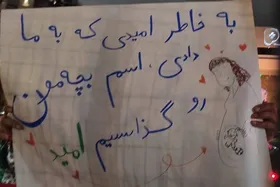 به خاطر امیدی که به ما
دادی، اسم بچه‌مون
رو گذاشتیم
امید